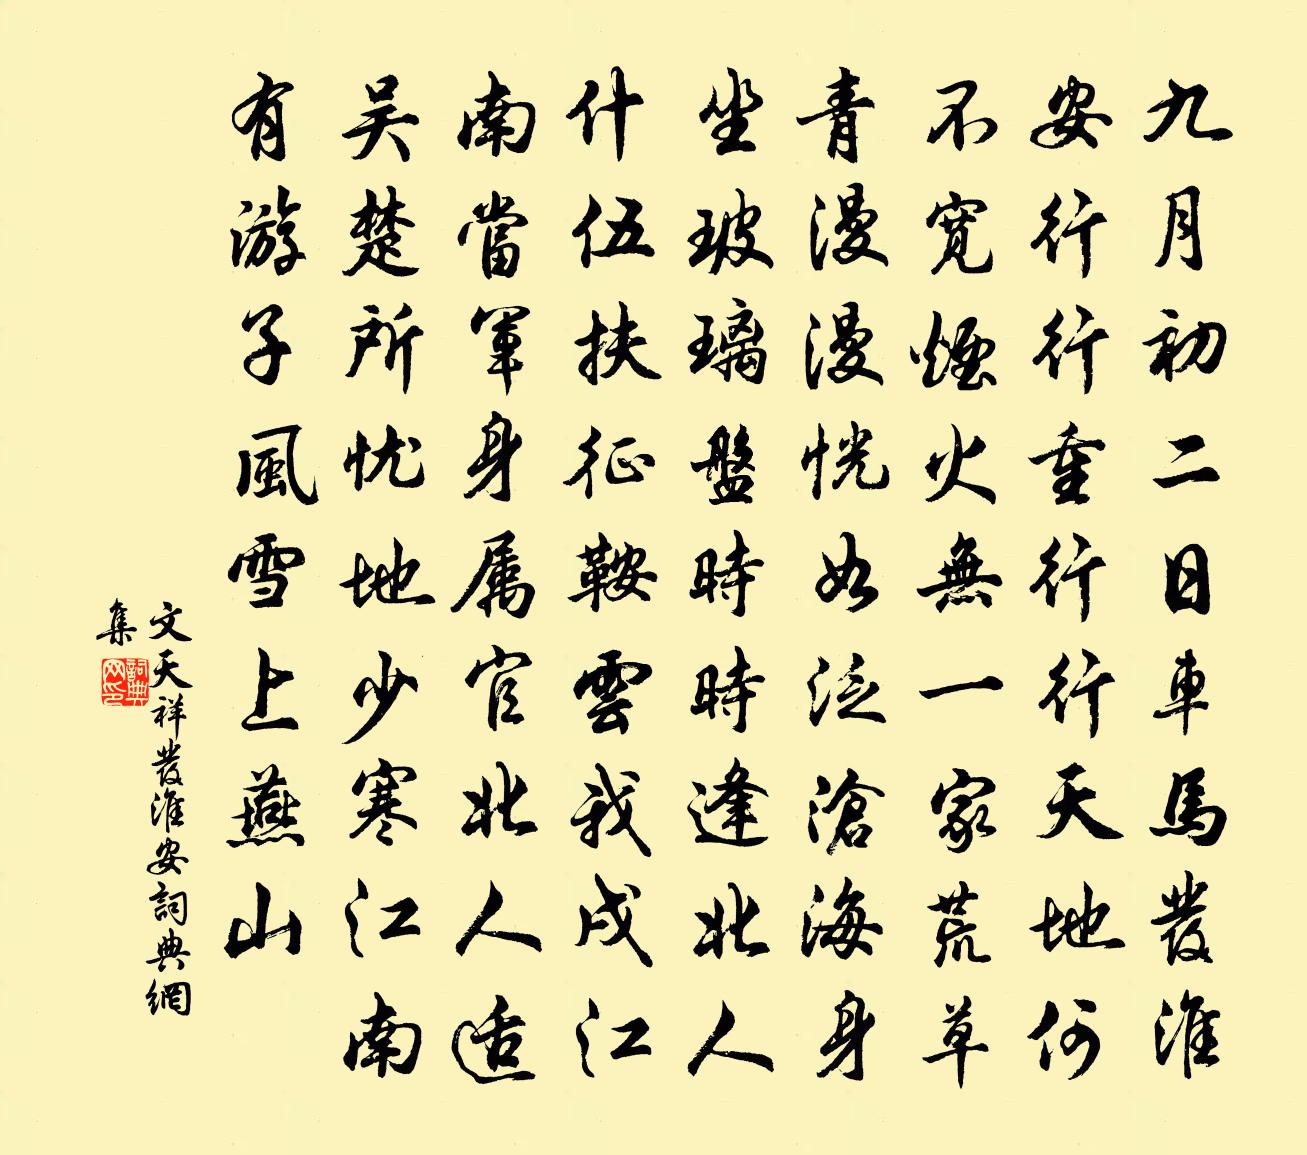 九月初二日車馬發淮
安行行重行行天地何
不寬煙火無一家荒草
青漫漫恍如泛滄海身
坐玻璃盤時時逢北人
什伍扶征鞍雲我戍江
南當軍身属官北人适
吴楚所忧地少寒江南
有游子風雪上燕山
文天祥發淮安詞典網
集
詞典网印